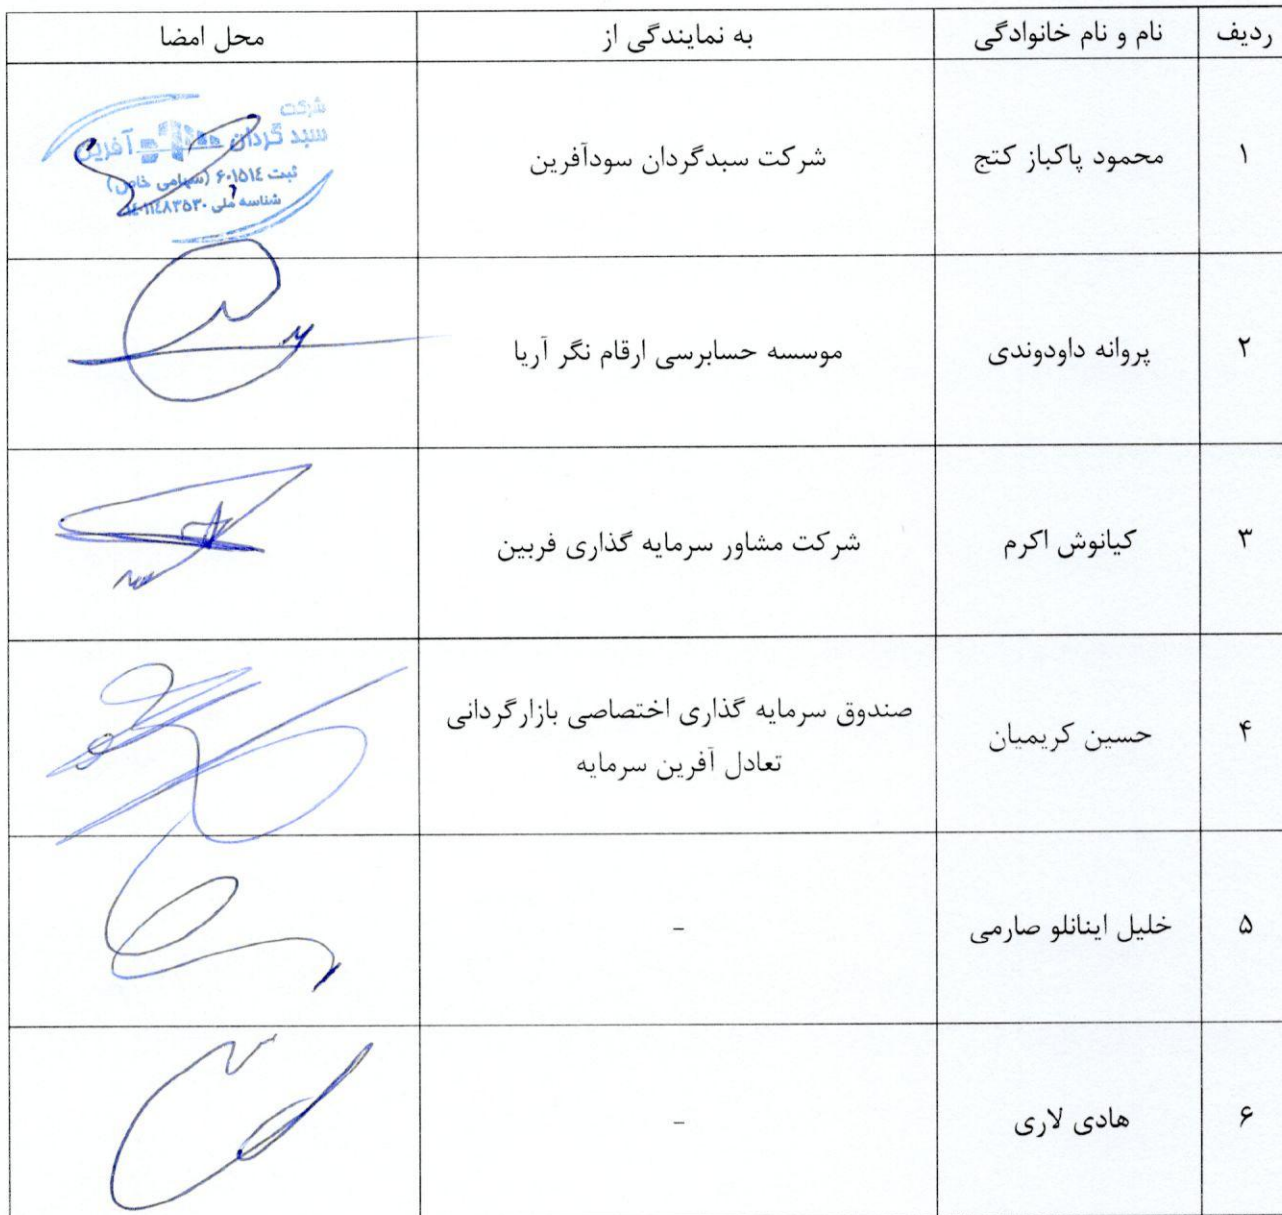 ردیف نام و نام خانوادگی به نمایندگی از محل امضا
۱ محمود پاکباز کتج شرکت سبدگردان سودآفرین
شرکت
سبد گردان آفرین
ثبت ۶۰۱۵۱٤ (سهامی خاص)
شناسه ملی
۲ پروانه داودوندی موسسه حسابرسی ارقام نگر آریا
۳ کیانوش اکرم شرکت مشاور سرمایه گذاری فربین
۴ حسین کریمیان صندوق سرمایه گذاری اختصاصی بازارگردانی
تعادل آفرین سرمایه
۵ خلیل اینانلو صارمی -
۶ هادی لاری -